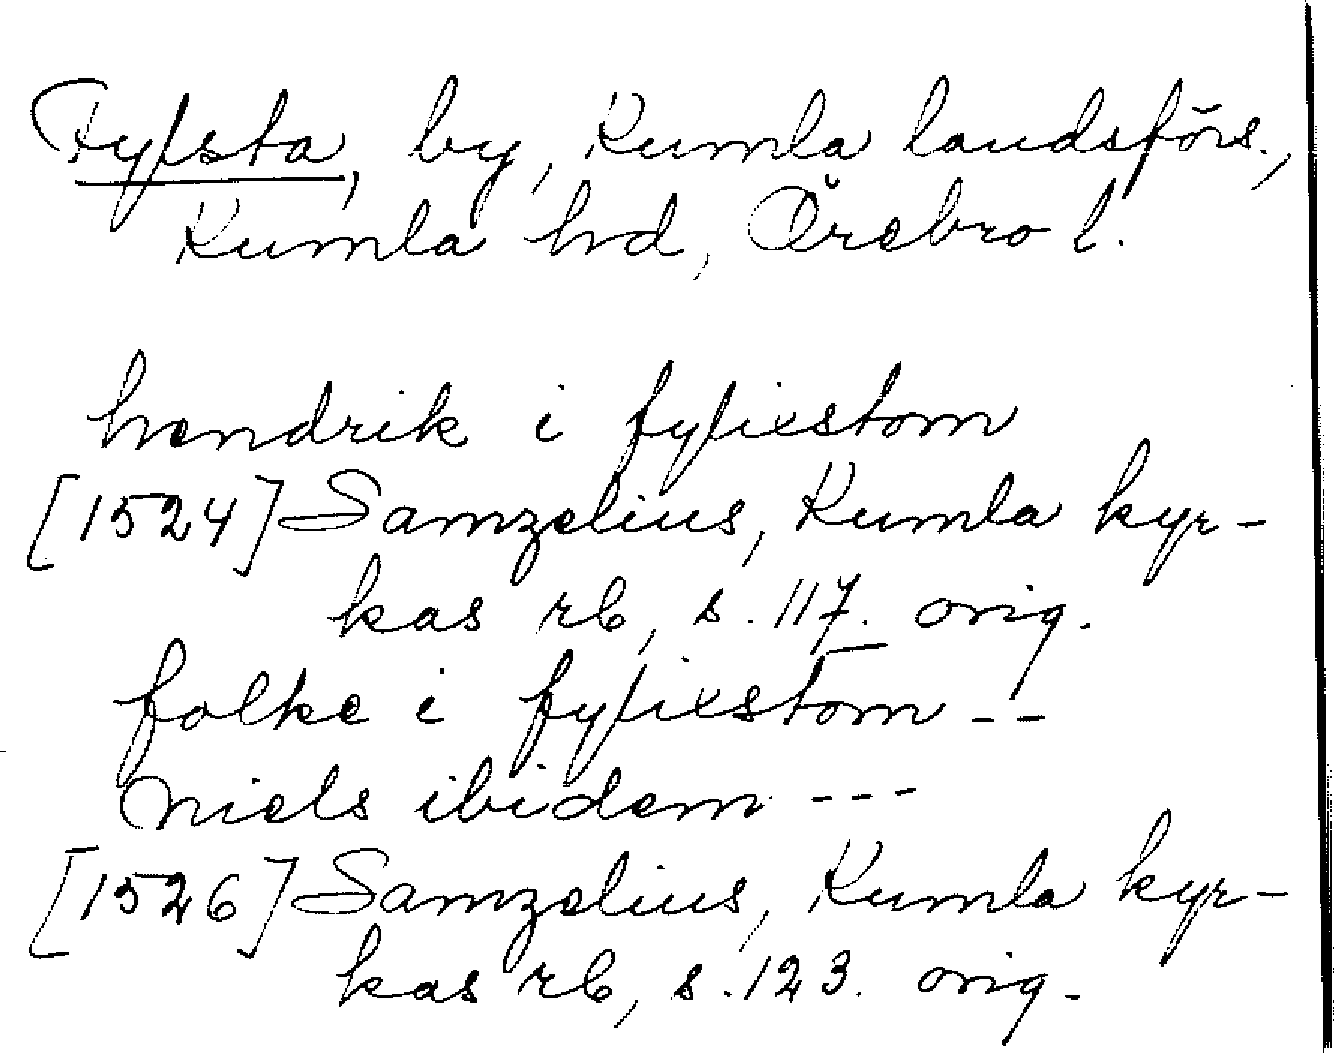 Fylsta, by, Kumla landsförs.,
Kumla hd, Örebro l.
hendrik i fylixstom
[1524] Samzelius, Kumla kyr-
kas rb, s. 117. orig.
folke i fylixstom - -
niels ibidem - - -
[1526] Samzelius, Kumla kyr-
kas rb, s. 123. orig.